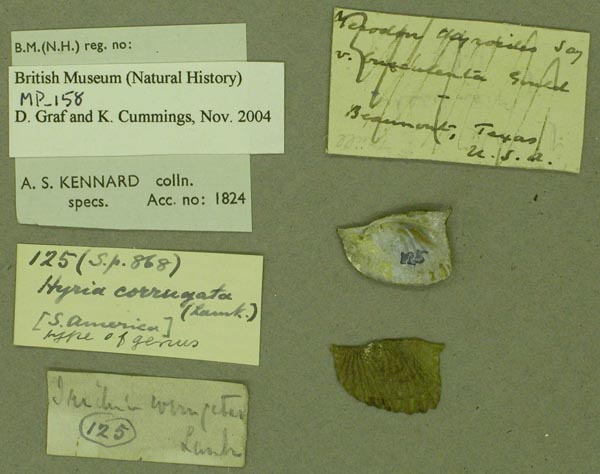 B.M.(N.H.) reg. no:
British Museum (Natural History)
MP_158
D. Graf and K. Cummings, Nov. 2004
A. S. KENNARD colln.
specs. Acc. no: 1824
125 (S.p. 868)
Hyria corrugata
(Lamk.)
[S. America]
type of genus
corrugata
125
Lamk
Say
v. Gould
Beaumont, Texas
U. S. A.
125